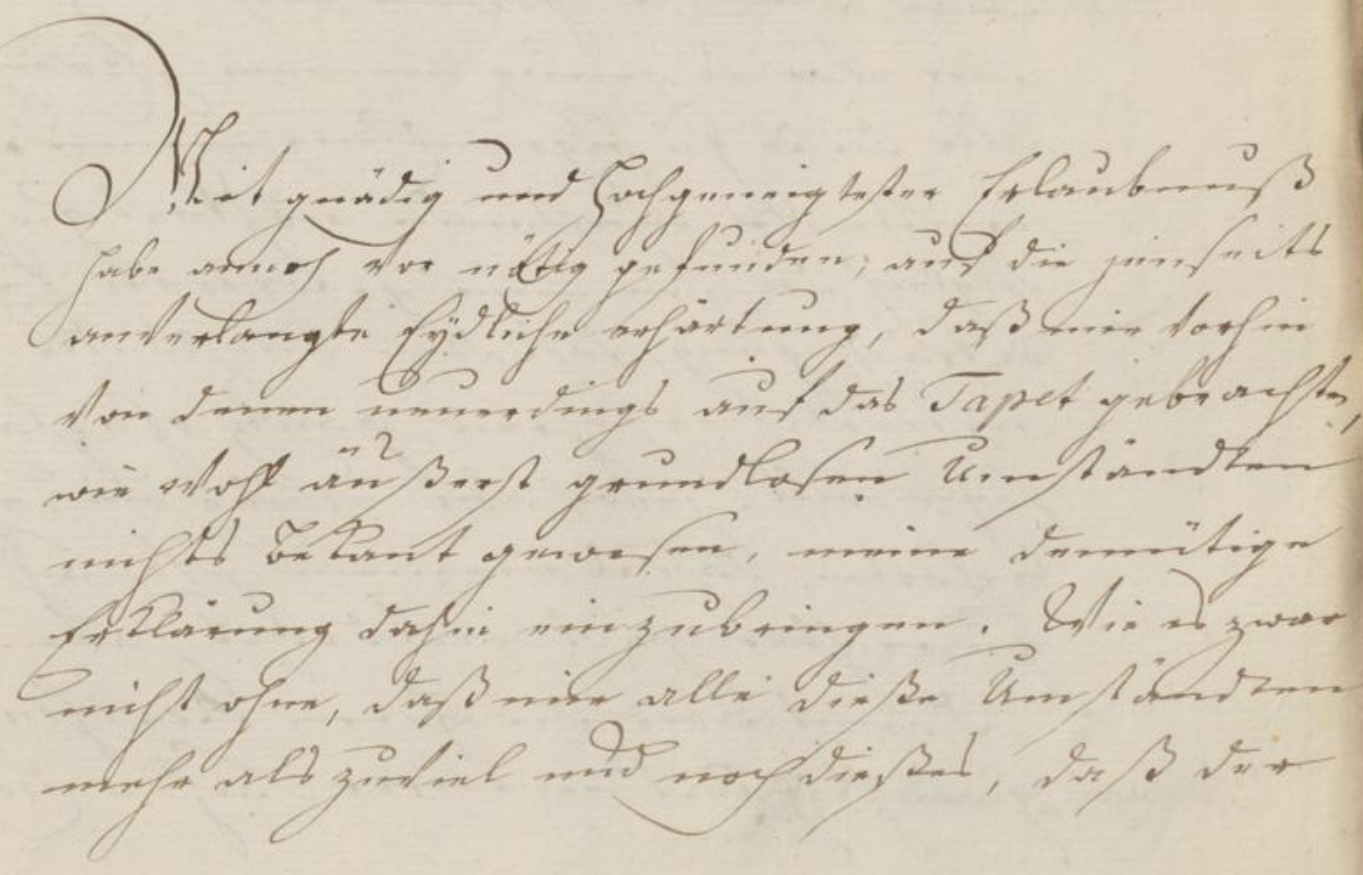 Mit gnädig und hochgeneigtester Erlaubnuß
habe annoch vor nötig gefunden, auf die jenseits
anverlangte Eydliche erhärtung, daß mir vorhin
von denen neuerdings auf das Tapet gebrachten,
wie wohl äußerst grundlosen Umständten
nichts bekant gewesen, meine demütige
Erklärung dahin einzubringen. Wie es zwar
nicht ohne, daß mir alle dieße Umständten
mehr als zuviel und noch dießes, daß der